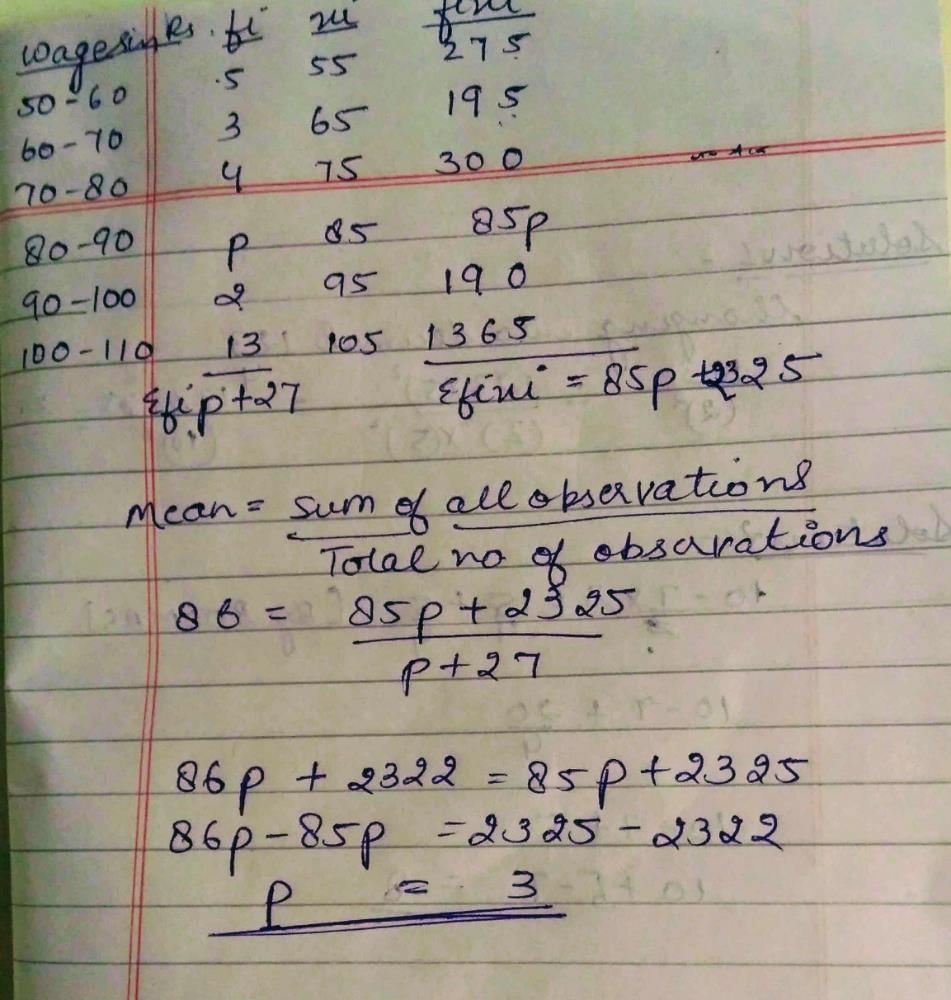 wages in Rs. fi xi fixi
50-60 5 55 275
60-70 3 65 195
70-80 4 75 300
80-90 p 85 85p
90-100 2 95 190
100-110 13 105 1365
Σfi p+27 Σfixi = 85p + 2325
Mean = sum of all observations
Total no of obsarations
86 = 85p + 2325
p + 27
86p + 2322 = 85p + 2325
86p - 85p = 2325 - 2322
p = 3